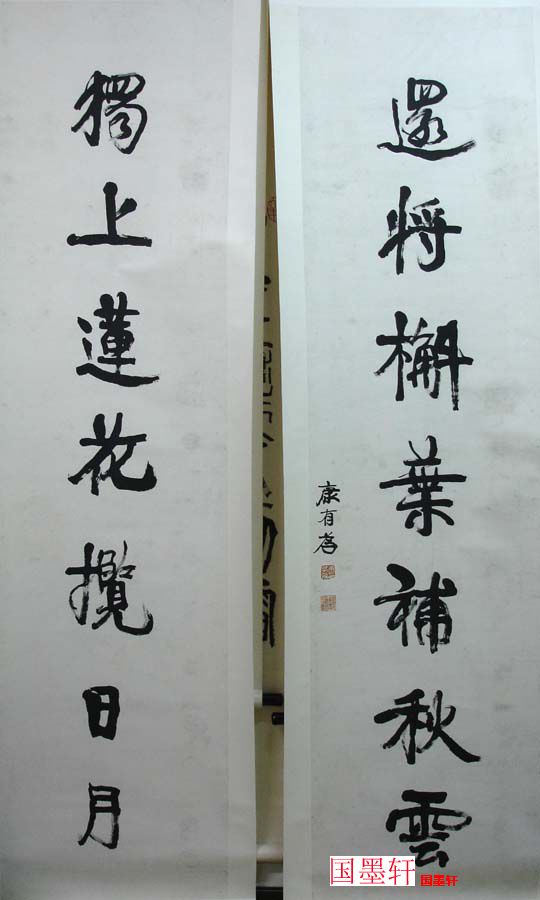 獨上蓮花攬日月
還將檞葉補秋雲
康有為
国墨轩
国墨轩